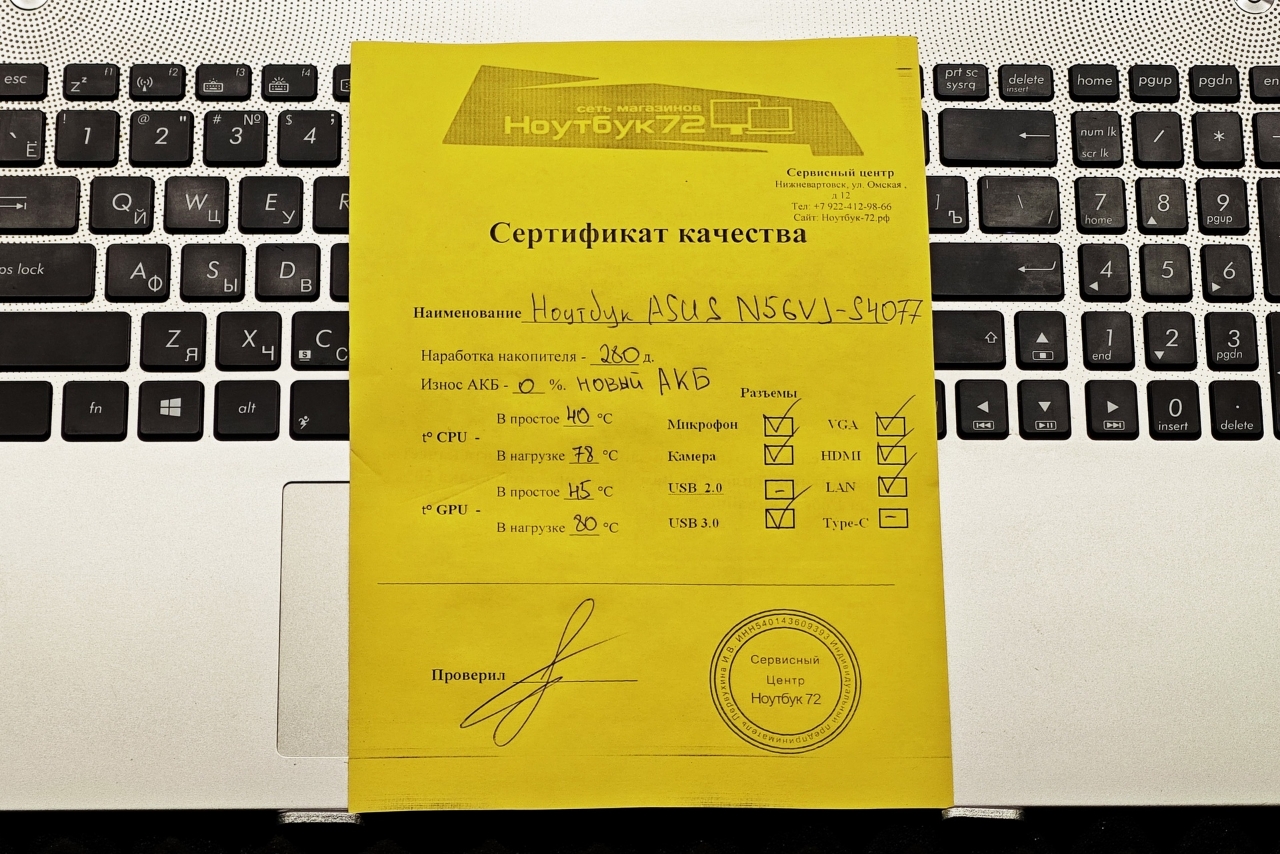 esc
f1
f2
f3
f4
prt sc
sysrq
delete
insert
home
pgup
pgdn
! 1
@ 2 "
# 3 №
$ 4 ;
` Ё
num lk
scr lk
/
*
Q Й
W Ц
E У
R
Ъ
| \ /
7 home
8
9 pgup
ps lock
A Ф
S Ы
D В
4
5
6
Z Я
X Ч
C С
1 end
2
3 pgdn
fn
alt
0 insert
. delete
сеть магазинов
Ноутбук72
Сервисный центр
Нижневартовск, ул. Омская ,
д 12
Тел: +7 922-412-98-66
Сайт: Ноутбук-72.рф
Сертификат качества
Наименование Ноутбук ASUS N56VJ-S4077
Наработка накопителя - 280 д.
Износ АКБ - 0 %. новый АКБ
Разъемы
В простое 40 °C
Микрофон ✓ VGA ✓
t° CPU -
В нагрузке 78 °C
Камера ✓ HDMI ✓
В простое 45 °C
USB 2.0 - LAN ✓
t° GPU -
В нагрузке 80 °C
USB 3.0 ✓ Type-C -
Проверил
Индивидуальный предприниматель Первухина И.В. ИНН540143609393
Сервисный
Центр
Ноутбук 72